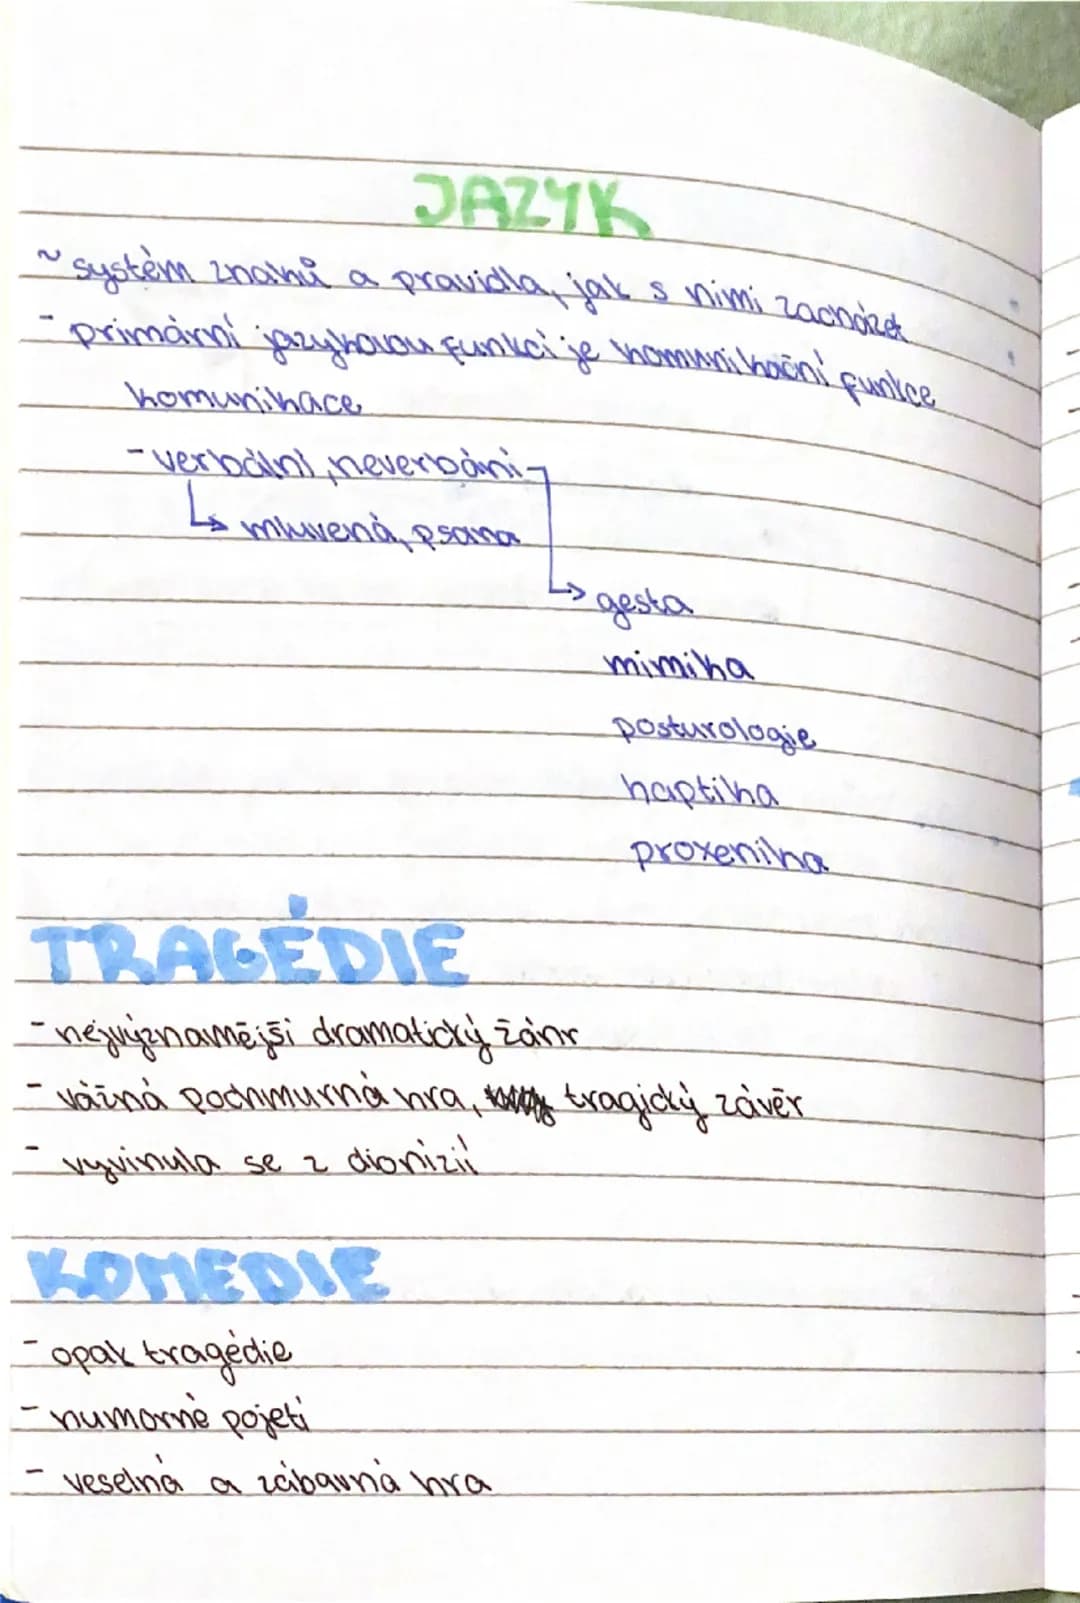 JAZYK
~ systém znaků a pravidla, jak s nimi zacházet
- primární jazykovou funkcí je komunikační funkce
komunikace
- verbální, neverbání
↳ mluvená, psaná
↳ gesta
mimika
posturologie
haptika
proxenika
TRAGÉDIE
- nejvýznamější dramatický žánr
- vážná pochmurná hra, tragický závěr
- vyvinula se z dionizií
KOMEDIE
- opak tragédie
- humorné pojetí
- veselná a zábavná hra